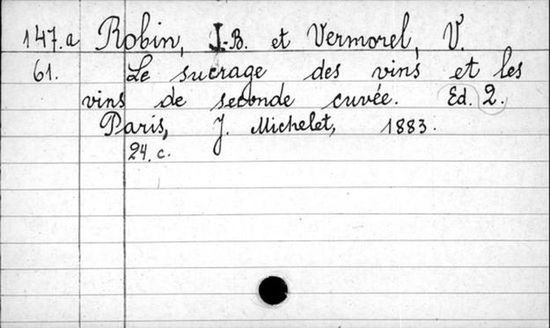 147.a Robin, J.-B. et Vermorel, V.
61. Le sucrage des vins et les
vins de seconde cuvée. Ed. 2.
Paris, J. Michelet, 1883.
24. c.